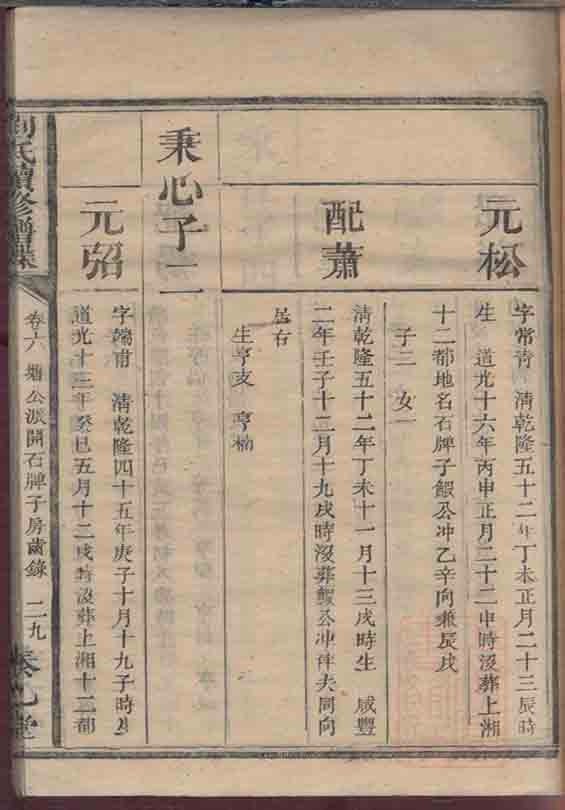 元松
字常青 清乾隆五十二年丁未正月二十三辰時
生 道光十六年丙申正月二十二申時沒葬上湘
十二都地名石牌子鰕公冲乙辛向兼辰戌
子二 女一
配蕭
清乾隆五十二年丁未十一月十三戌時生 咸豐
二年壬子十二月十九戌時沒葬鰕公冲伴夫同向
居右
生亨支 亨楠
秉心子二
元弨
字端甫 清乾隆四十五年庚子十月十九子時生
道光十三年癸巳五月十二戌時沒葬上湘十二都
劉氏續修譜牒
卷六 公派開石牌子房齒錄 二九
堂